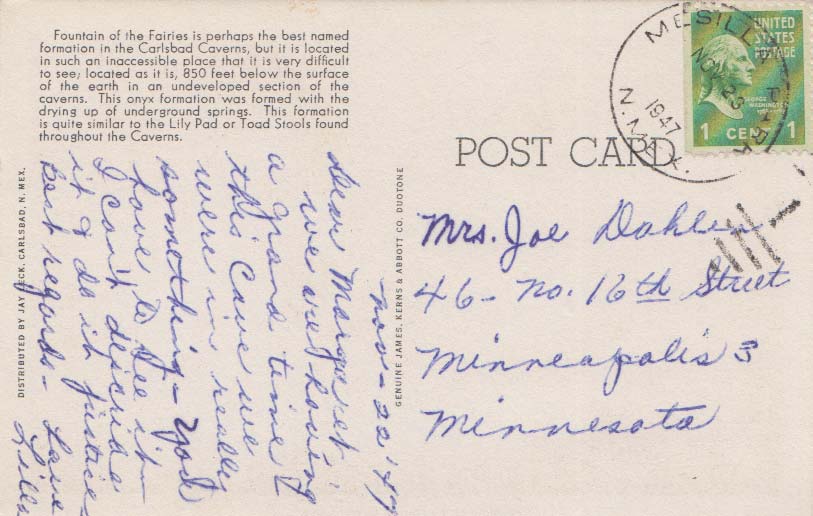 Fountain of the Fairies is perhaps the best named
formation in the Carlsbad Caverns, but it is located
in such an inaccessible place that it is very difficult
to see; located as it is, 850 feet below the surface
of the earth in an undeveloped section of the
caverns. This onyx formation was formed with the
drying up of underground springs. This formation
is quite similar to the Lily Pad or Toad Stools found
throughout the Caverns.
DISTRIBUTED BY JAY LECK, CARLSBAD, N. MEX.
Nov - 22 '47
Dear Margaret:
we are having
a grand time &
this Cave we
were in really
something - You'd
love to see it -
I can't describe
it & do it justice
Best regards - Love
Lills
GENUINE JAMES, KERNS & ABBOTT CO. DUOTONE
POST CARD
MESILLA PARK
NOV 23
1947
N. MEX.
UNITED
STATES
POSTAGE
GEORGE
WASHINGTON
1 CENT 1
Mrs. Joe Dahlen
46 - No. 16th Street
Minneapolis 3
Minnesota